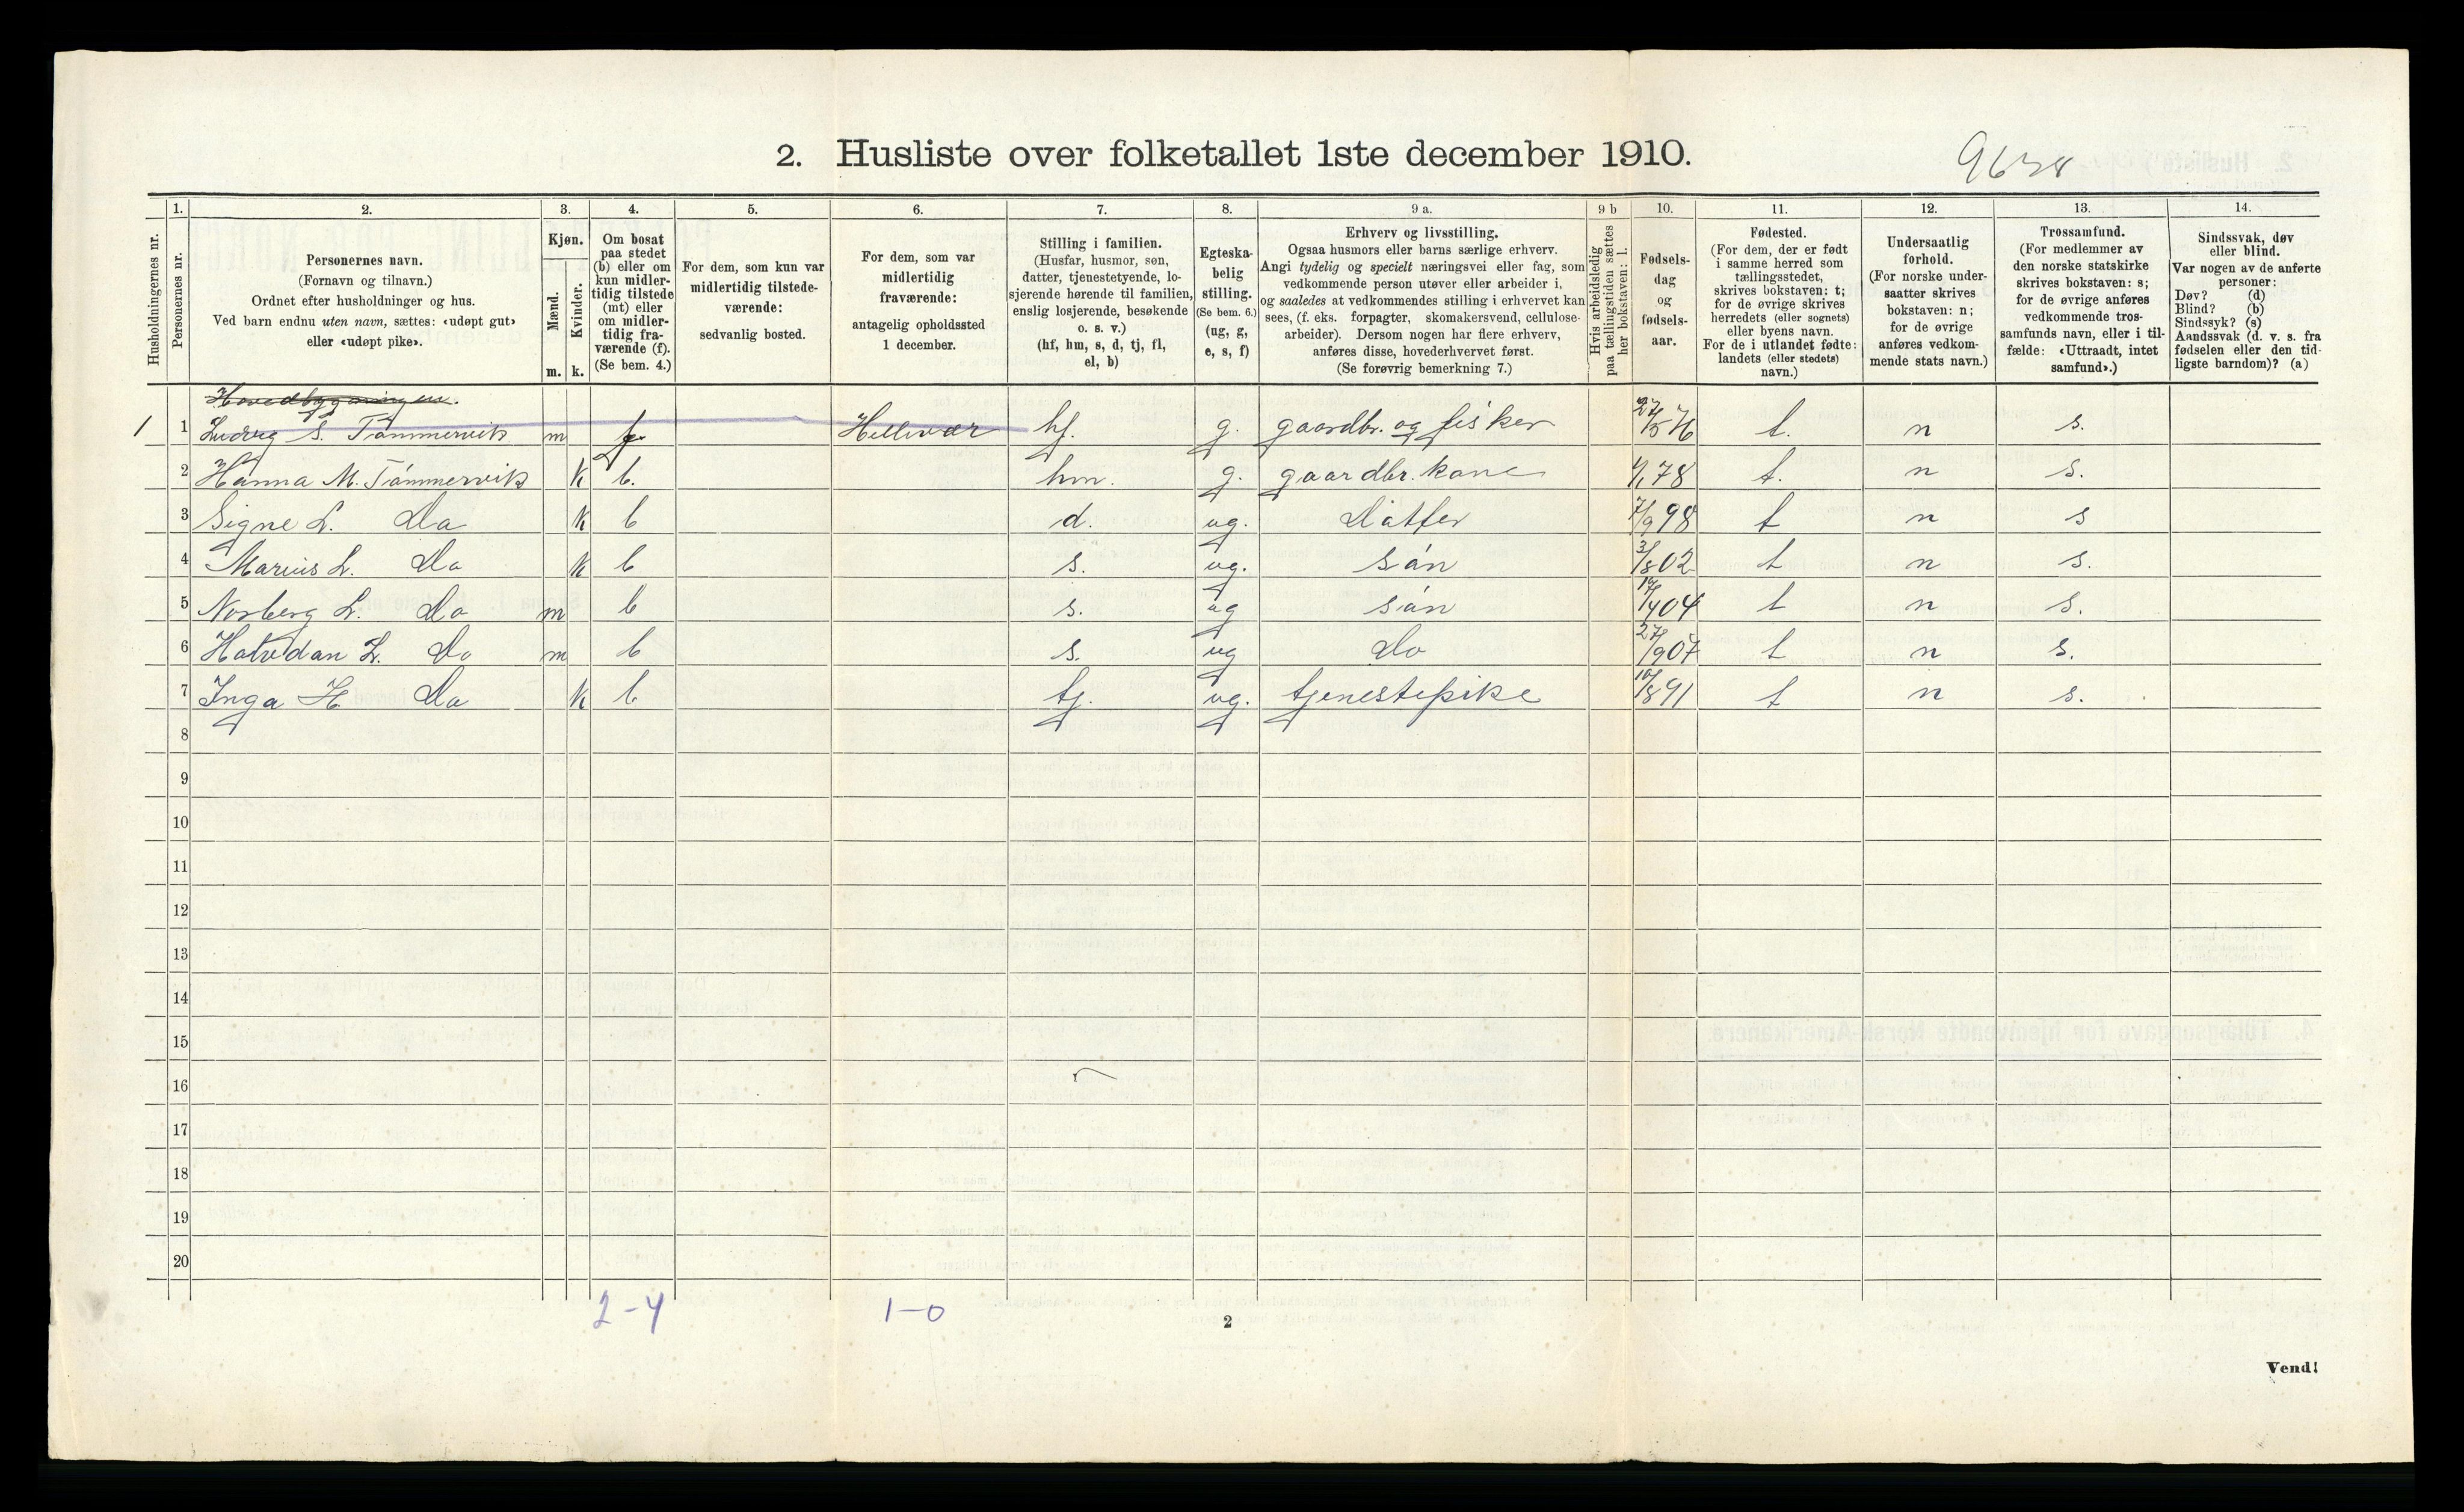 2. Husliste over folketallet 1ste december 1910.
Husholdningernes nr.
1.
Personernes nr.
2.
Personernes navn.
(Fornavn og tilnavn.)
Ordnet efter husholdninger og hus.
Ved barn endnu uten navn, sættes: «udøpt gut»
eller «udøpt pike».
3.
Kjøn.
Mænd.
Kvinder.
m. k.
4.
Om bosat
paa stedet
(b) eller om
kun midler-
tidig tilstede
(mt) eller
om midler-
tidig fra-
værende (f).
(Se bem. 4.)
5.
For dem, som kun var
midlertidig tilstede-
værende:
sedvanlig bosted.
6.
For dem, som var
midlertidig
fraværende:
antagelig opholdssted
1 december.
7.
Stilling i familien.
(Husfar, husmor, søn,
datter, tjenestetyende, lo-
sjerende hørende til familien,
enslig losjerende, besøkende
o. s. v.)
(hf, hm, s, d, tj, fl,
el, b)
8.
Egteska-
belig
stilling.
(Se bem. 6.)
(ug, g,
e, s, f)
9 a.
Erhverv og livsstilling.
Ogsaa husmors eller barns særlige erhverv.
Angi tydelig og specielt næringsvei eller fag, som
vedkommende person utøver eller arbeider i,
og saaledes at vedkommendes stilling i erhvervet kan
sees, (f. eks. forpagter, skomakersvend, cellulose-
arbeider). Dersom nogen har flere erhverv,
anføres disse, hovederhvervet først.
(Se forøvrig bemerkning 7.)
9 b
Hvis arbeidsledig
paa tællingstiden sættes
her bokstaven: l.
10.
Fødsels-
dag
og
fødsels-
aar.
11.
Fødested.
(For dem, der er født
i samme herred som
tællingsstedet,
skrives bokstaven: t;
for de øvrige skrives
herredets (eller sognets)
eller byens navn.
For de i utlandet fødte:
landets (eller stedets)
navn.)
12.
Undersaatlig
forhold.
(For norske under-
saatter skrives
bokstaven: n;
for de øvrige
anføres vedkom-
mende stats navn.)
13.
Trossamfund.
(For medlemmer av
den norske statskirke
skrives bokstaven: s;
for de øvrige anføres
vedkommende tros-
samfunds navn, eller i til-
fælde: «Uttraadt, intet
samfund».)
14.
Sindssvak, døv
eller blind.
Var nogen av de anførte
personer:
Døv? (d)
Blind? (b)
Sindssyk? (s)
Aandssvak (d. v. s. fra
fødselen eller den tid-
ligste barndom)? (a)
Hovedbygningen.
1 1 Ludvig S. Tømmervik m f Hellivær hf. g. gaardbr. og fisker 27/5 76 t. n s.
2 Hanna M. Tømmervik k b. hm. g. gaardbr. kone 4/1 78 t. n s.
3 Signe L. Do k b d. ug. Datter 7/9 98 t n s
4 Marius L. Do k b s. ug. søn 3/8 02 t n s.
5 Norberg L. Do m b s. ug søn 04 t n s.
6 Halvdan L. Do m b s. ug Do 27/9 07 t n s.
7 Inga H Do k b tj. ug. tjenestepike 10/8 91 t n s.
8
9
10
11
12
13
14
15
16
17
18
19
20
2-4 1-0
2
Vend!